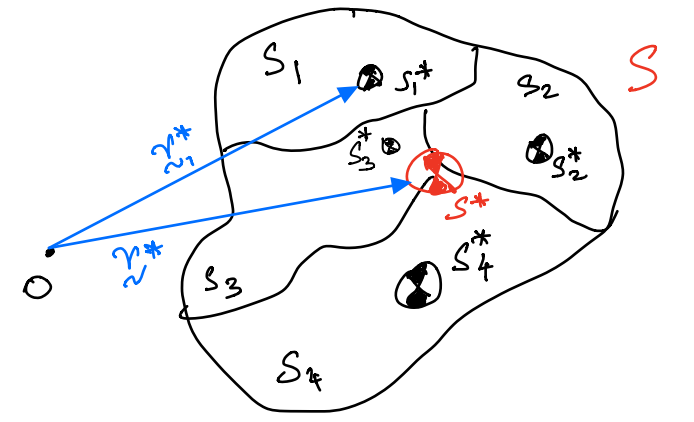 S
S₁
S₁*
S₂
r₁*
~
S₃*
S₂*
S*
r*
~
S₄*
O
S₃
S₄